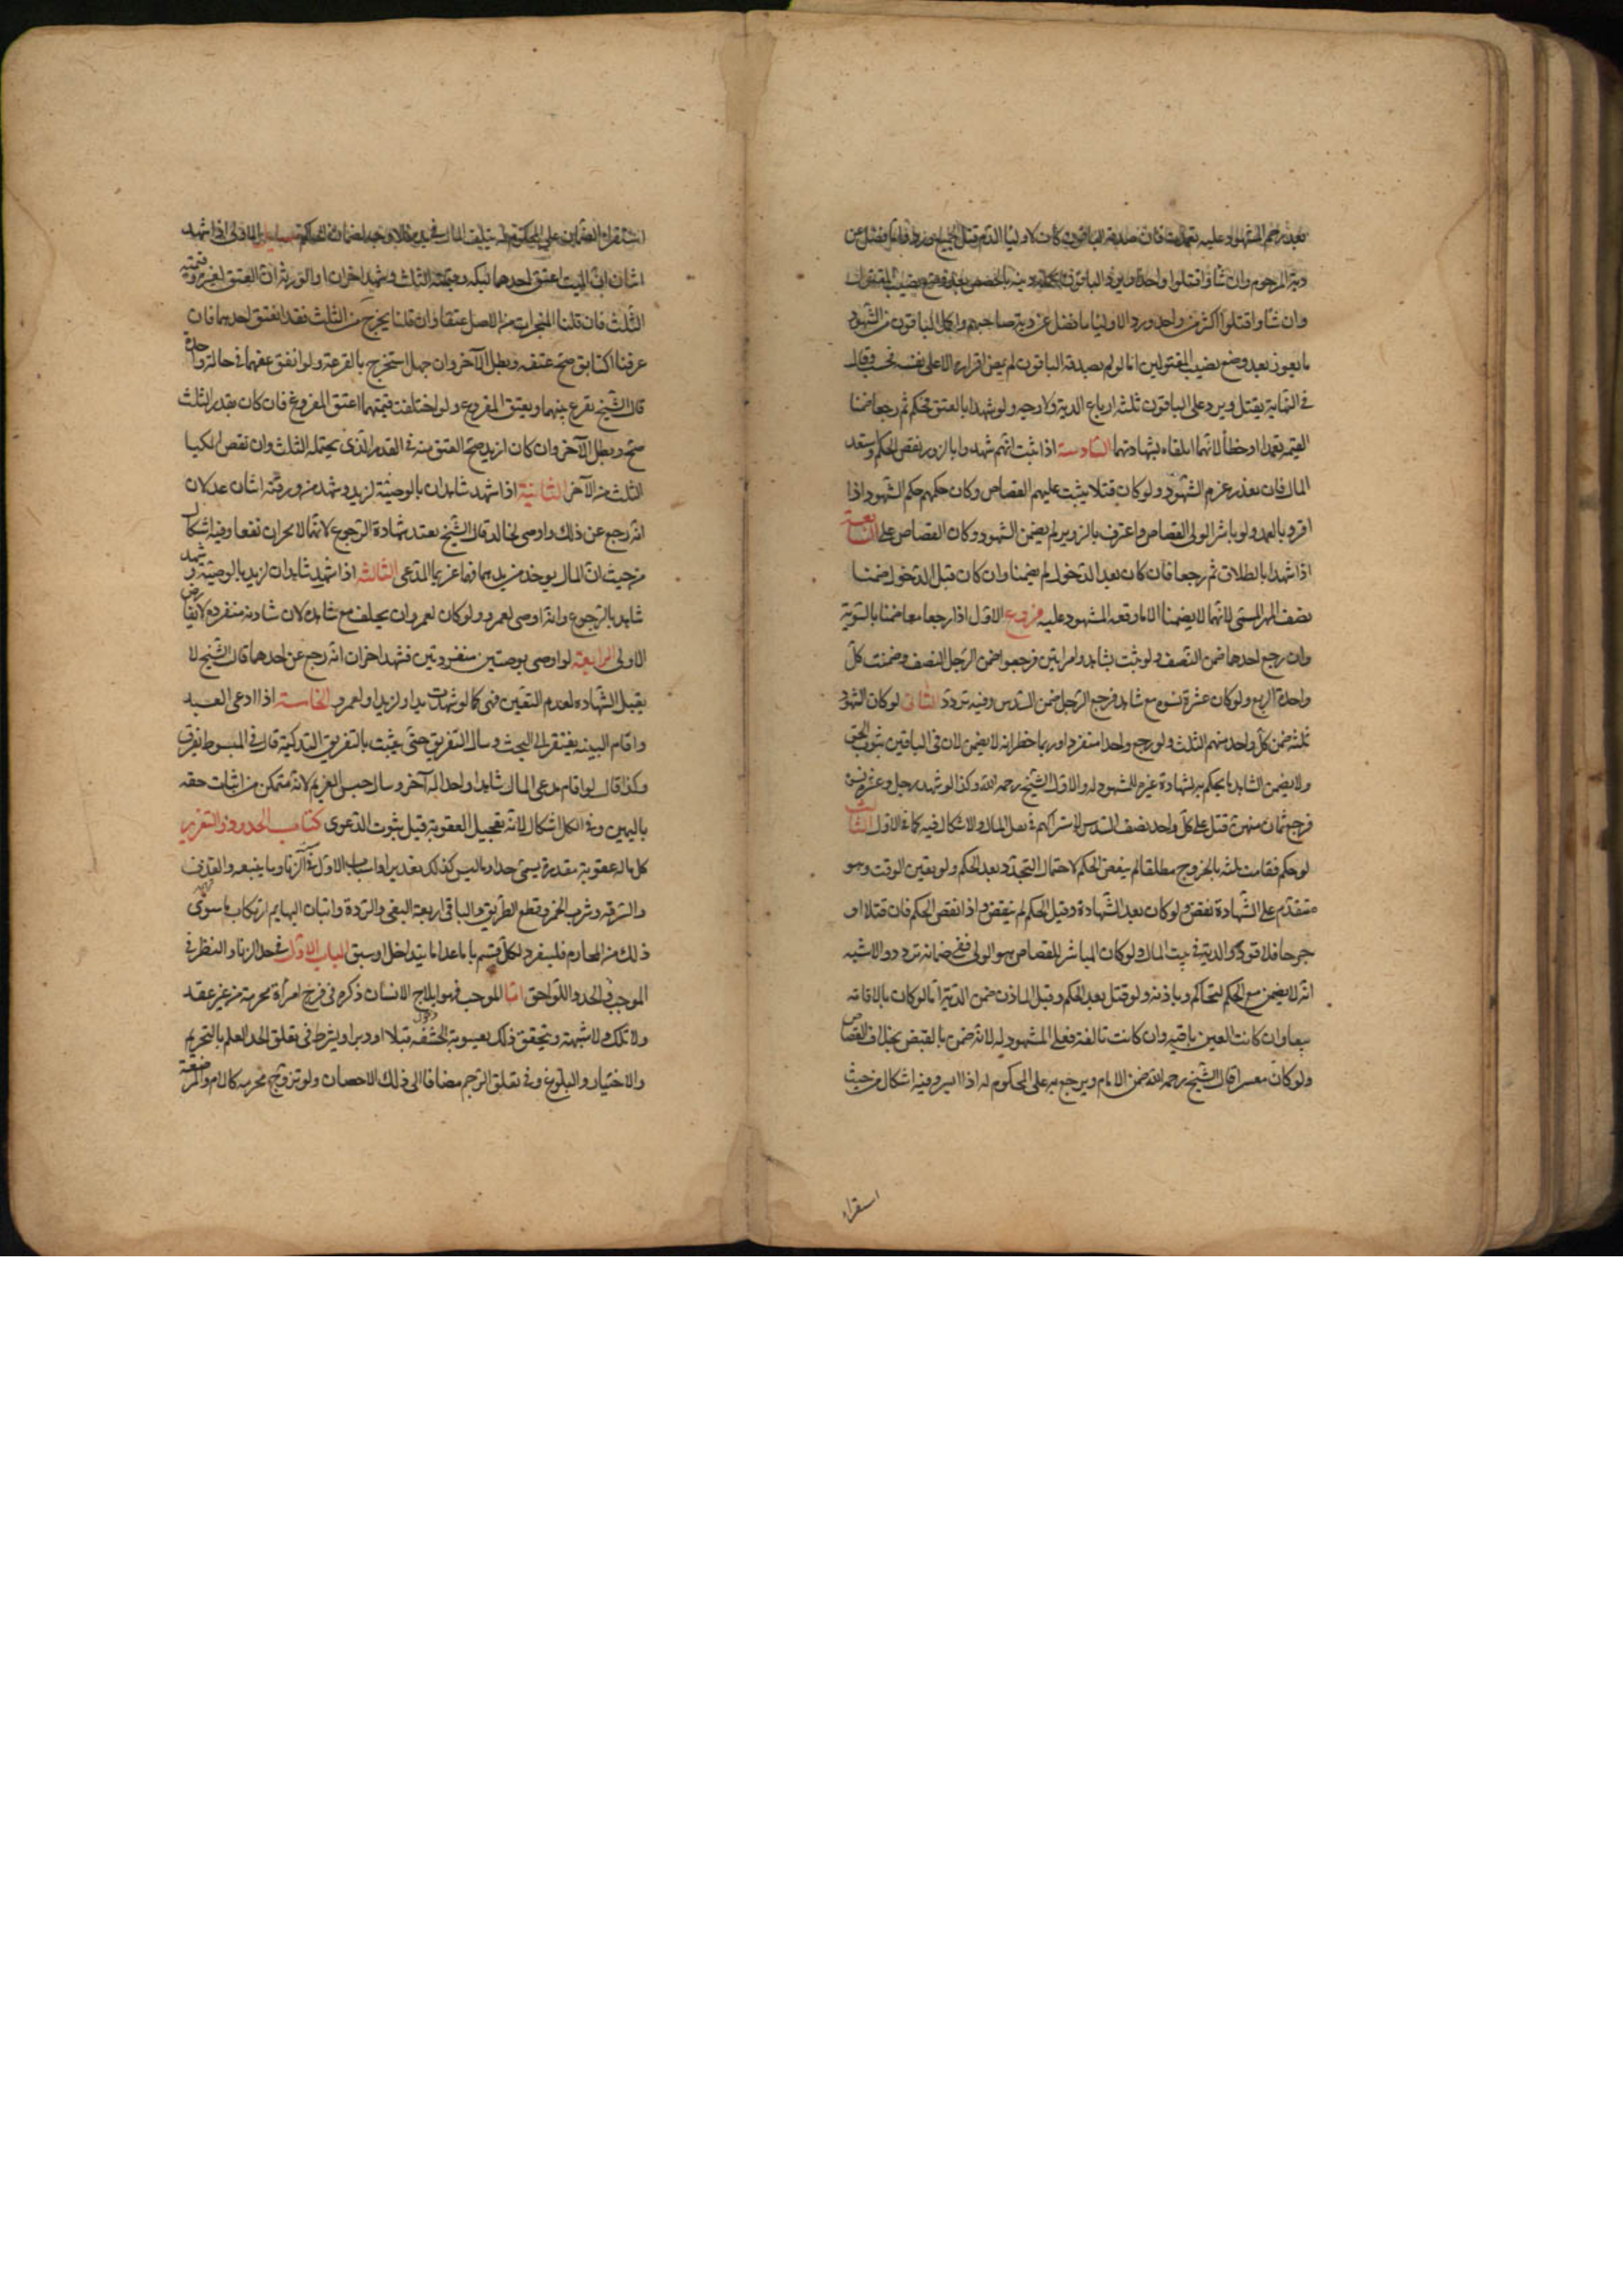 بعد رجم المشهود عليه تعمدت فان صدقه الباقون كان لاولياء الدم قتل الجميع ويردوا ما فضل عن
دية المرجوم وان شاؤا قتلوا واحدا ويرد الباقون تكملة ديته بالحصص بعد وضع نصيب المقتول
وان شاؤا قتلوا اكثر من واحد ورد الاوليا ما فضل عن دية صاحبهم واكمل الباقون من الشهود
ما يعوز بعد وضع نصيب المقتولين اما لو لم يصدقه الباقون لم يمض اقراره الا على نفسه فحسب وقال
في النهاية يقتل ويرد على الباقون ثلثه ارباع الدية ولا وجه ولو شهدا بالعتق فحكم ثم رجعا ضمنا
القيمه تعمدا او خطأ لانهما اتلفاه بشهادتهما السادسة اذا ثبت انهم شهدوا بالزور نقض الحكم واستعيد
المال فان تعذر غرم الشهود ولو كان قتلا يثبت عليهم القصاص وكان حكمهم حكم الشهود اذا
اقروا بالعمد ولو باشر الولى القصاص واعترف بالتزوير لم يضمن الشهود وكان القصاص عليه السابعة
اذا شهدا بالطلاق ثم رجعا فان كان بعد الدخول لم يضمنا وان كان قبل الدخول ضمنا
نصف المهر المسمى لانهما لا يضمنا الا ما دفعه المشهود عليه فروع الاول اذا رجعا معا ضمنا بالسوية
وان رجع احدهما ضمن النصف ولو ثبت بشاهد وامراتين فرجعوا ضمن الرجل النصف وضمنت كل
واحدة الربع ولو كان عشرة نسوه مع شاهد فرجع الرجل ضمن السدس وفيه تردد الثانى لو كان الشهود
ثلثه ضمن كل واحد منهم الثلث ولو رجع واحد منفردا وربما خطر انه لا يضمن لان في الباقين ثبوت الحق
ولا يضمن الشاهد ما يحكم به بشهادة غيره للمشهود له والاول اختيار الشيخ رحمه الله وكذا لو شهد رجل وعشر نسوة
فرجع ثمان منهن قيل على كل واحد نصف السدس لاشتراكهم في نقل المال والاشكال فيه كما في الاول الثالث
لو حكم فقامت بينه بالجروح مطلقا لم ينقض الحكم لاحتمال التجدد بعد الحكم ولو تعين الوقت وهو
متقدم على الشهادة نقض ولو كان بعد الشهادة وقبل الحكم لم ينقض واذا نقض الحكم فان قتلا او
جرحا فلا قود والدية في بيت المال ولو كان المباشر للقصاص هو الولى ففى ضمانه تردد والاشبه
انه لا يضمن مع حكم الحاكم وباذنه ولو قتل بعد الحكم وقبل الاذن ضمن الدية اما لو كان مالا فانه
يستعاد ان كانت العين باقيه وان كانت تالفة فعلى المشهود له لانه ضمن بالقبض بخلاف القصاص
ولو كان معسرا قال الشيخ رحمه الله ضمن الامام ويرجع به على المحكوم له اذا ايسر وفيه اشكال من حيث
استقرار
استقرار الضمان على المحكوم له بتلف المال في يده فلا وجه لضمان الحاكم مسائل الاولى اذا شهد
اثنان ان الميت اعتق احد مماليكه وقيمته الثلث وشهد اخران او الورثه ان العتق لغيره وقيمته
الثلث فان قلنا المنجزات من الاصل عتقا وان قلنا يخرج من الثلث فقد انعتق احدهما فان
عرفنا السابق صح عتقه وبطل الآخر وان جهل استخرج بالقرعة ولو اتفق عتقهما في حالة واحدة
قال الشيخ يقرع بينهما ويعتق المقروع ولو اختلفت قيمتهما اعتق المقروع فان كان بقدر الثلث
صح وبطل الآخر وان كان ازيد صح العتق منه في القدر الذى يحتمله الثلث وان نقص اكملنا
الثلث من الآخر الثانية اذا شهد شاهدان بالوصية لزيد وشهد من ورثته اثنان عدلان
انه رجع عن ذلك واوصى لخالد قال الشيخ يقبل شهادة الرجوع لانهما لا يجران نفعا وفيه اشكال
من حيث ان المال يوخذ من يدهما فهما غريما المدعى الثالثه اذا شهد شاهدان لزيد بالوصية وشهد
شاهد بالرجوع وانه اوصى لعمرو ولو كان لعمرو ان يحلف مع شاهده لان شهادته منفرده لا تعارض
الاولى الرابعة لو اوصى بوصيتين منفردتين فشهد اخران انه رجع عن احدهما قال الشيخ لا
يقبل الشهاده لعدم التعيين فهى كما لو شهدت بدار لزيد او لعمرو الخامسة اذا ادعى العبد
واقام البينه يفتقر الى البحث وسال التفريق حتى يثبت بالتفريق التزكية قال في المبسوط يفرق
وكذا قال لو اقام مدعى المال شاهدا واحدا له آخر وسال حبس الغريم لانه متمكن من اثبات حقه
باليمين وفي الكل اشكال لانه تعجيل العقوبة قبل ثبوت الدعوى كتاب الحدود والتعزير
كل ما له عقوبة مقدرة يسمى حدا وما ليس كذلك تعزيرا واسباب الاول ستة الزنا وما يتبعه والقذف
والسرقه وشرب الخمر وقطع الطريق والباقى اربعة البغى والردة واتيان البهايم وارتكاب ما سوى
ذلك من المحارم فليفرد لكل قسم بابا عدا ما يتداخل او سبق الباب الاول في حد الزنا والنظر في
الموجب والحد واللواحق اما الموجب فهو ايلاج الانسان ذكره في فرج امرأة محرمة من غير عقد
ولا ملك ولا شبهة ويتحقق ذلك بغيبوبة الحشفه قبلا او دبرا ويشترط في تعلق الحد العلم بالتحريم
والاختيار والبلوغ وفي تعلق الرجم مضافا الى ذلك الاحصان ولو تزوج محرمه كالام والمرضعة